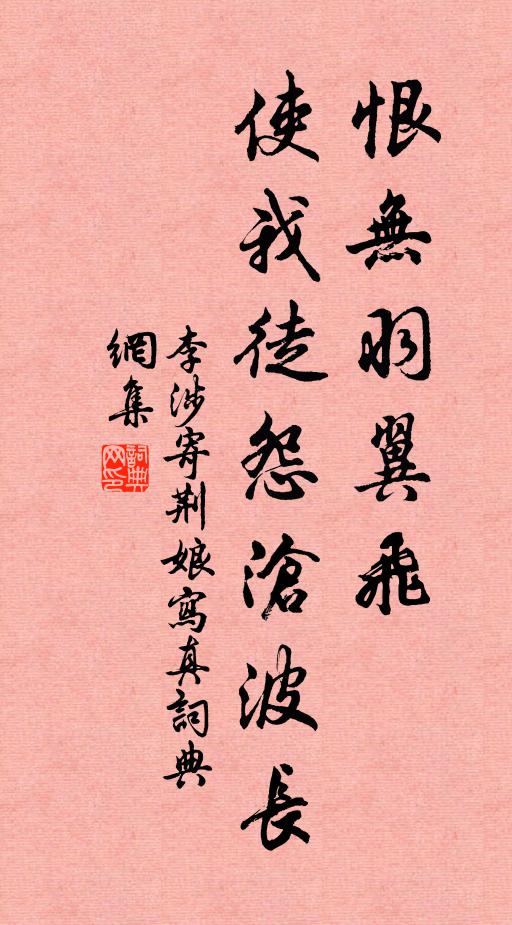 恨無羽翼飛
使我徒怨滄波長
李涉寄荆娘寫真詞典
網集
詞典
网印